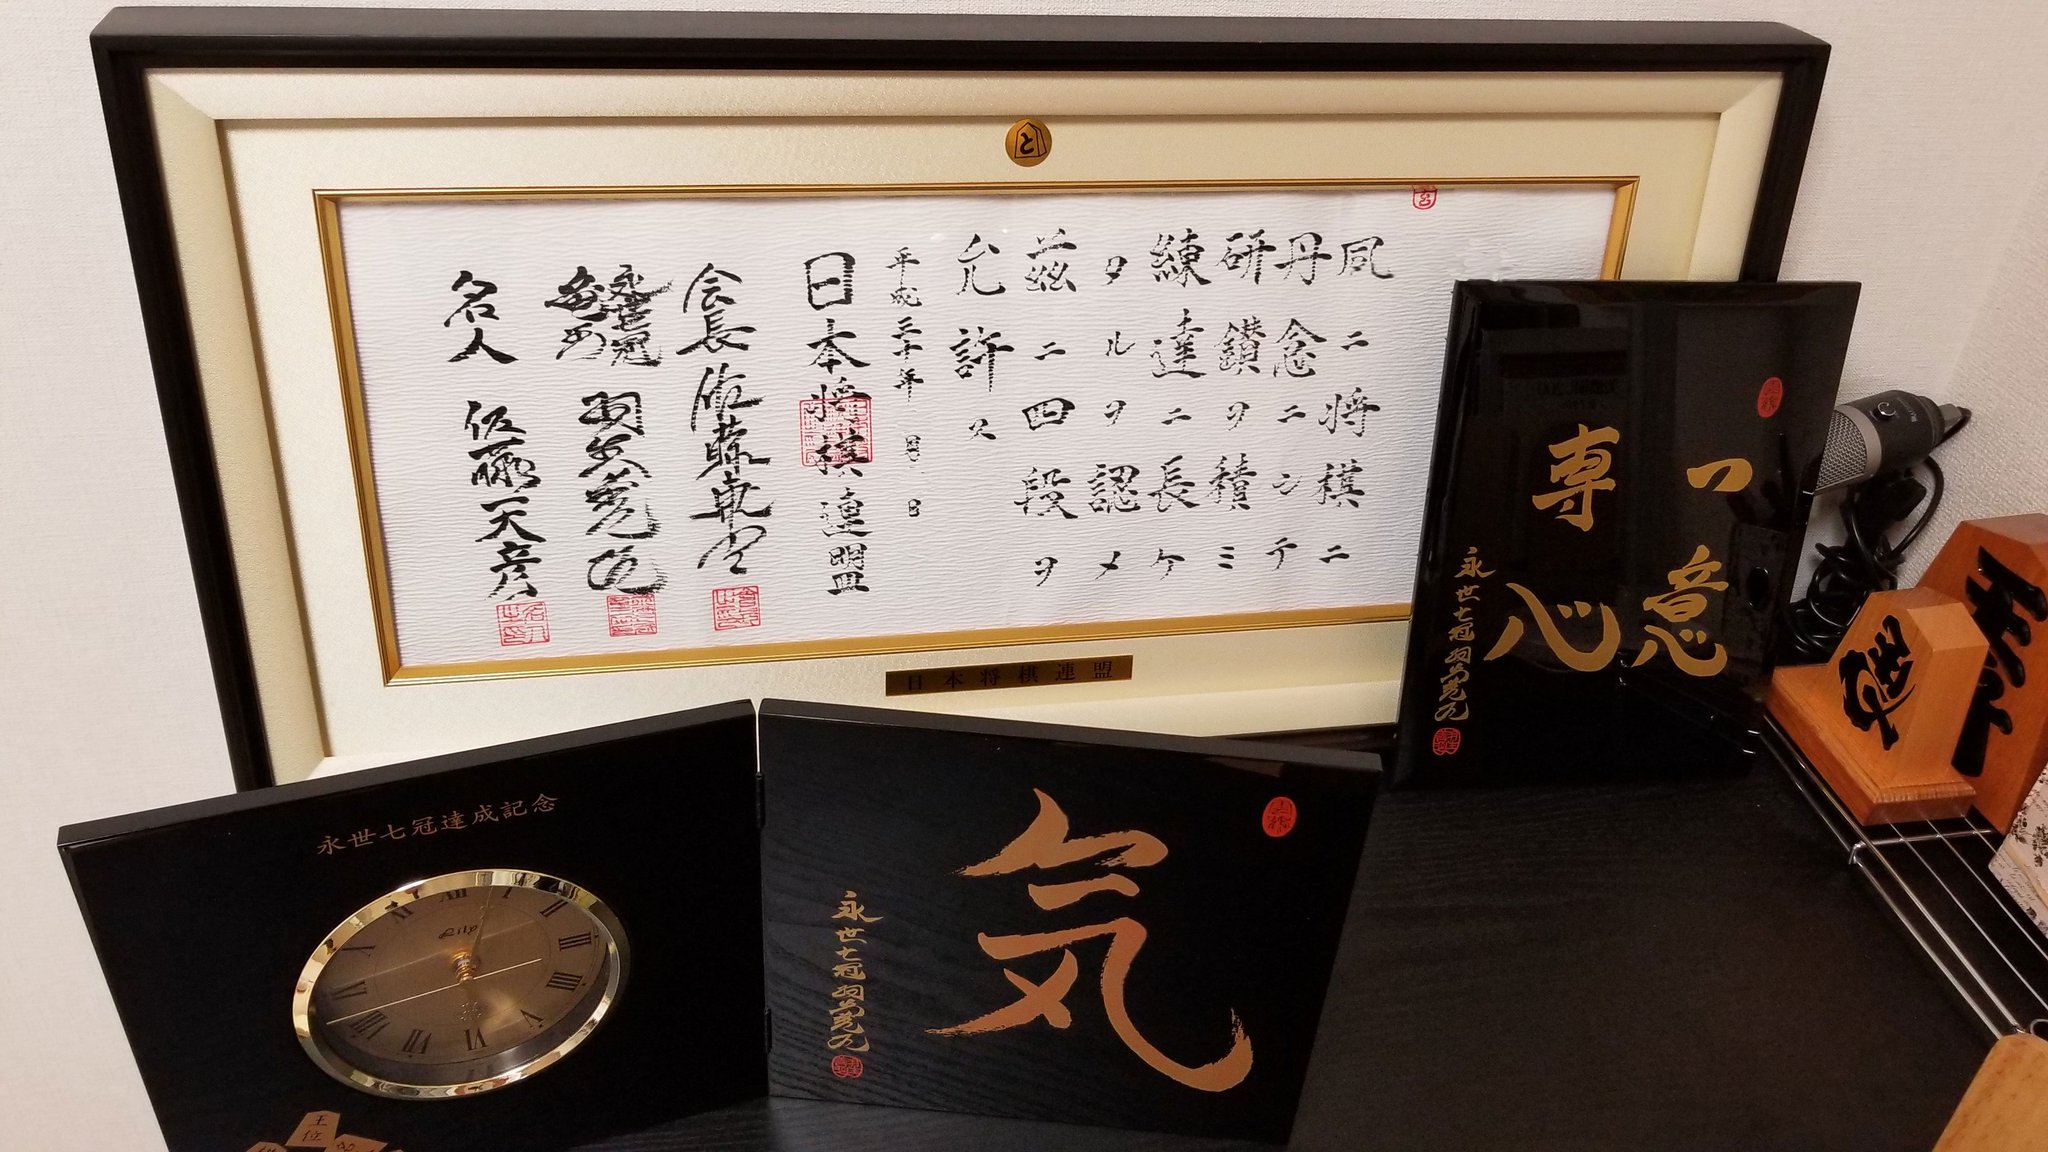 と
夙ニ将棋ニ
丹念ニシテ
研鑽ヲ積ミ
練達ニ長ケ
タルヲ認メ
茲ニ四段ヲ
允許ス
平成三十年 月 日
日本将棋連盟
会長 佐藤康光
永世七冠
羽生善治
名人 佐藤天彦
日本将棋連盟
一意
専心
永世七冠 羽生善治
永世七冠達成記念
気
永世七冠 羽生善治
王位